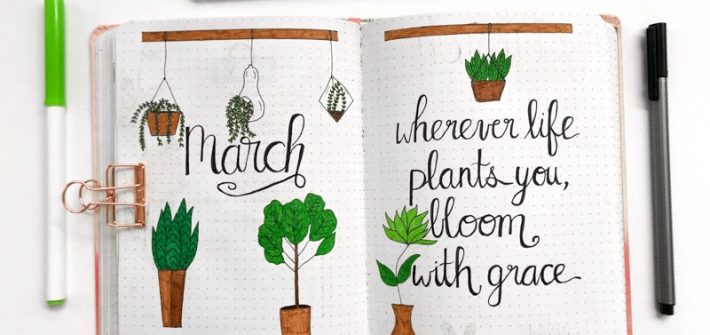 March
wherever life
plants you,
bloom
with grace